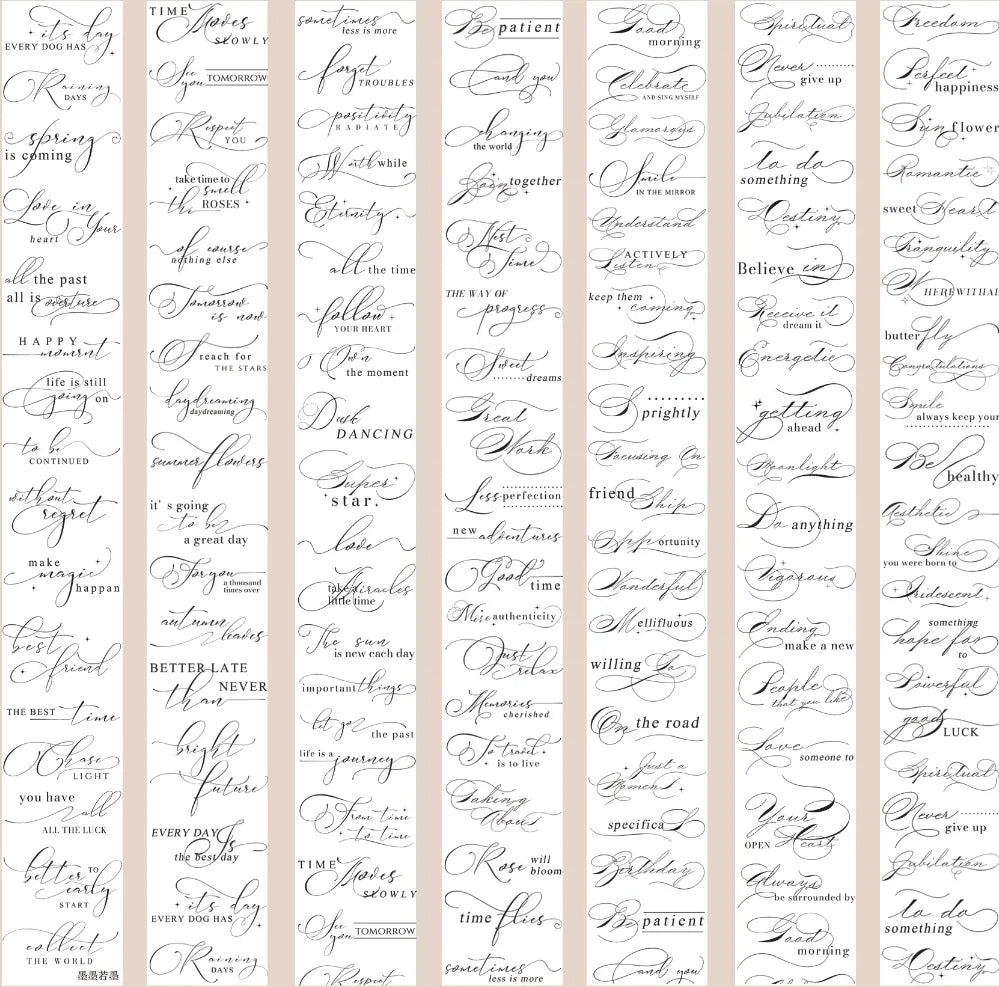 it's day
EVERY DOG HAS
Raining
DAYS
spring
is coming
Love in
Your
heart
all the past
all is overture
HAPPY
moment
life is still
going on
to be
CONTINUED
without
regret
make
magic
happan
best
friend
THE BEST time
Chase
LIGHT
you have
all
ALL THE LUCK
better TO
early
START
collect
THE WORLD
墨墨若墨
TIME Moves
SLOWLY
See
you TOMORROW
Respect
YOU
take time to
smell
the ROSES
of course
nothing else
Tomorrow
is now
reach for
THE STARS
daydreaming
daydreaming
summer flowers
it's going
to be
a great day
For you
a thousand
times over
autumn
leaves
BETTER LATE
NEVER
than
bright
future
EVERY DAY Is
the best day
it's day
EVERY DOG HAS
Raining
DAYS
sometimes
less is more
forget
TROUBLES
positivity
RADIATE
Worthwhile
Eternity
all the time
follow
YOUR HEART
Own
the moment
Dusk
DANCING
Super
star
love
take Miracles
little time
The sun
is new each day
important things
let go
the past
life is a journey
From time
to time
TIME Moves
SLOWLY
See
you TOMORROW
Respect
Be patient
and you
changing
the world
Join together
Next
Time
THE WAY OF
progress
Sweet
dreams
Great
Work
Less perfection
new adventures
Good
time
More authenticity
Just
relax
Memories
cherished
To travel
is to live
Talking
About
Rose will
bloom
time flies
sometimes
less is more
Good
morning
Celebrate
AND SING MYSELF
Glamorous
Smile
IN THE MIRROR
Understand
ACTIVELY
Listen
keep them
coming
Inspiring
Sprightly
Focusing On
friend Ship
Opportunity
Wonderful
Mellifluous
willing To
On the road
Just a
Moment
specifica L
Birthday
Be patient
and you
Spiritual
Never
give up
Jubilation
to do
something
Destiny
Believe in
Receive it
dream it
Energetic
getting
ahead
Moonlight
Do anything
Vigorous
Ending
make a new
People
that you like
Love
someone to
Your
OPEN Heart
Always
be surrounded by
Good
morning
Freedom
Perfect
happiness
Sun flower
Romantic
sweet Heart
Tranquility
W HEREWITHAL
butter fly
Congratulations
Smile
always keep your
Be
healthy
Aesthetic
Shine
you were born to
Iridescent
something
hope for
to
Powerful
good
LUCK
Spiritual
Never
give up
Jubilation
to do
something
Destiny